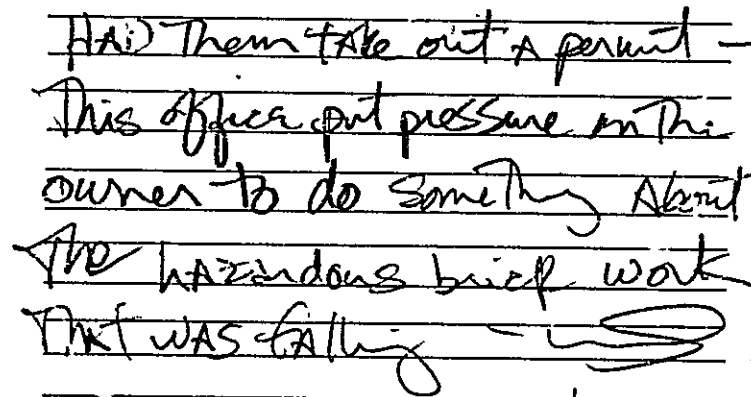 HAD Them tAke out A permit -
This office put pressure on The
owner to do something About
The hAzardous brick work
ThAt WAS fAlling -